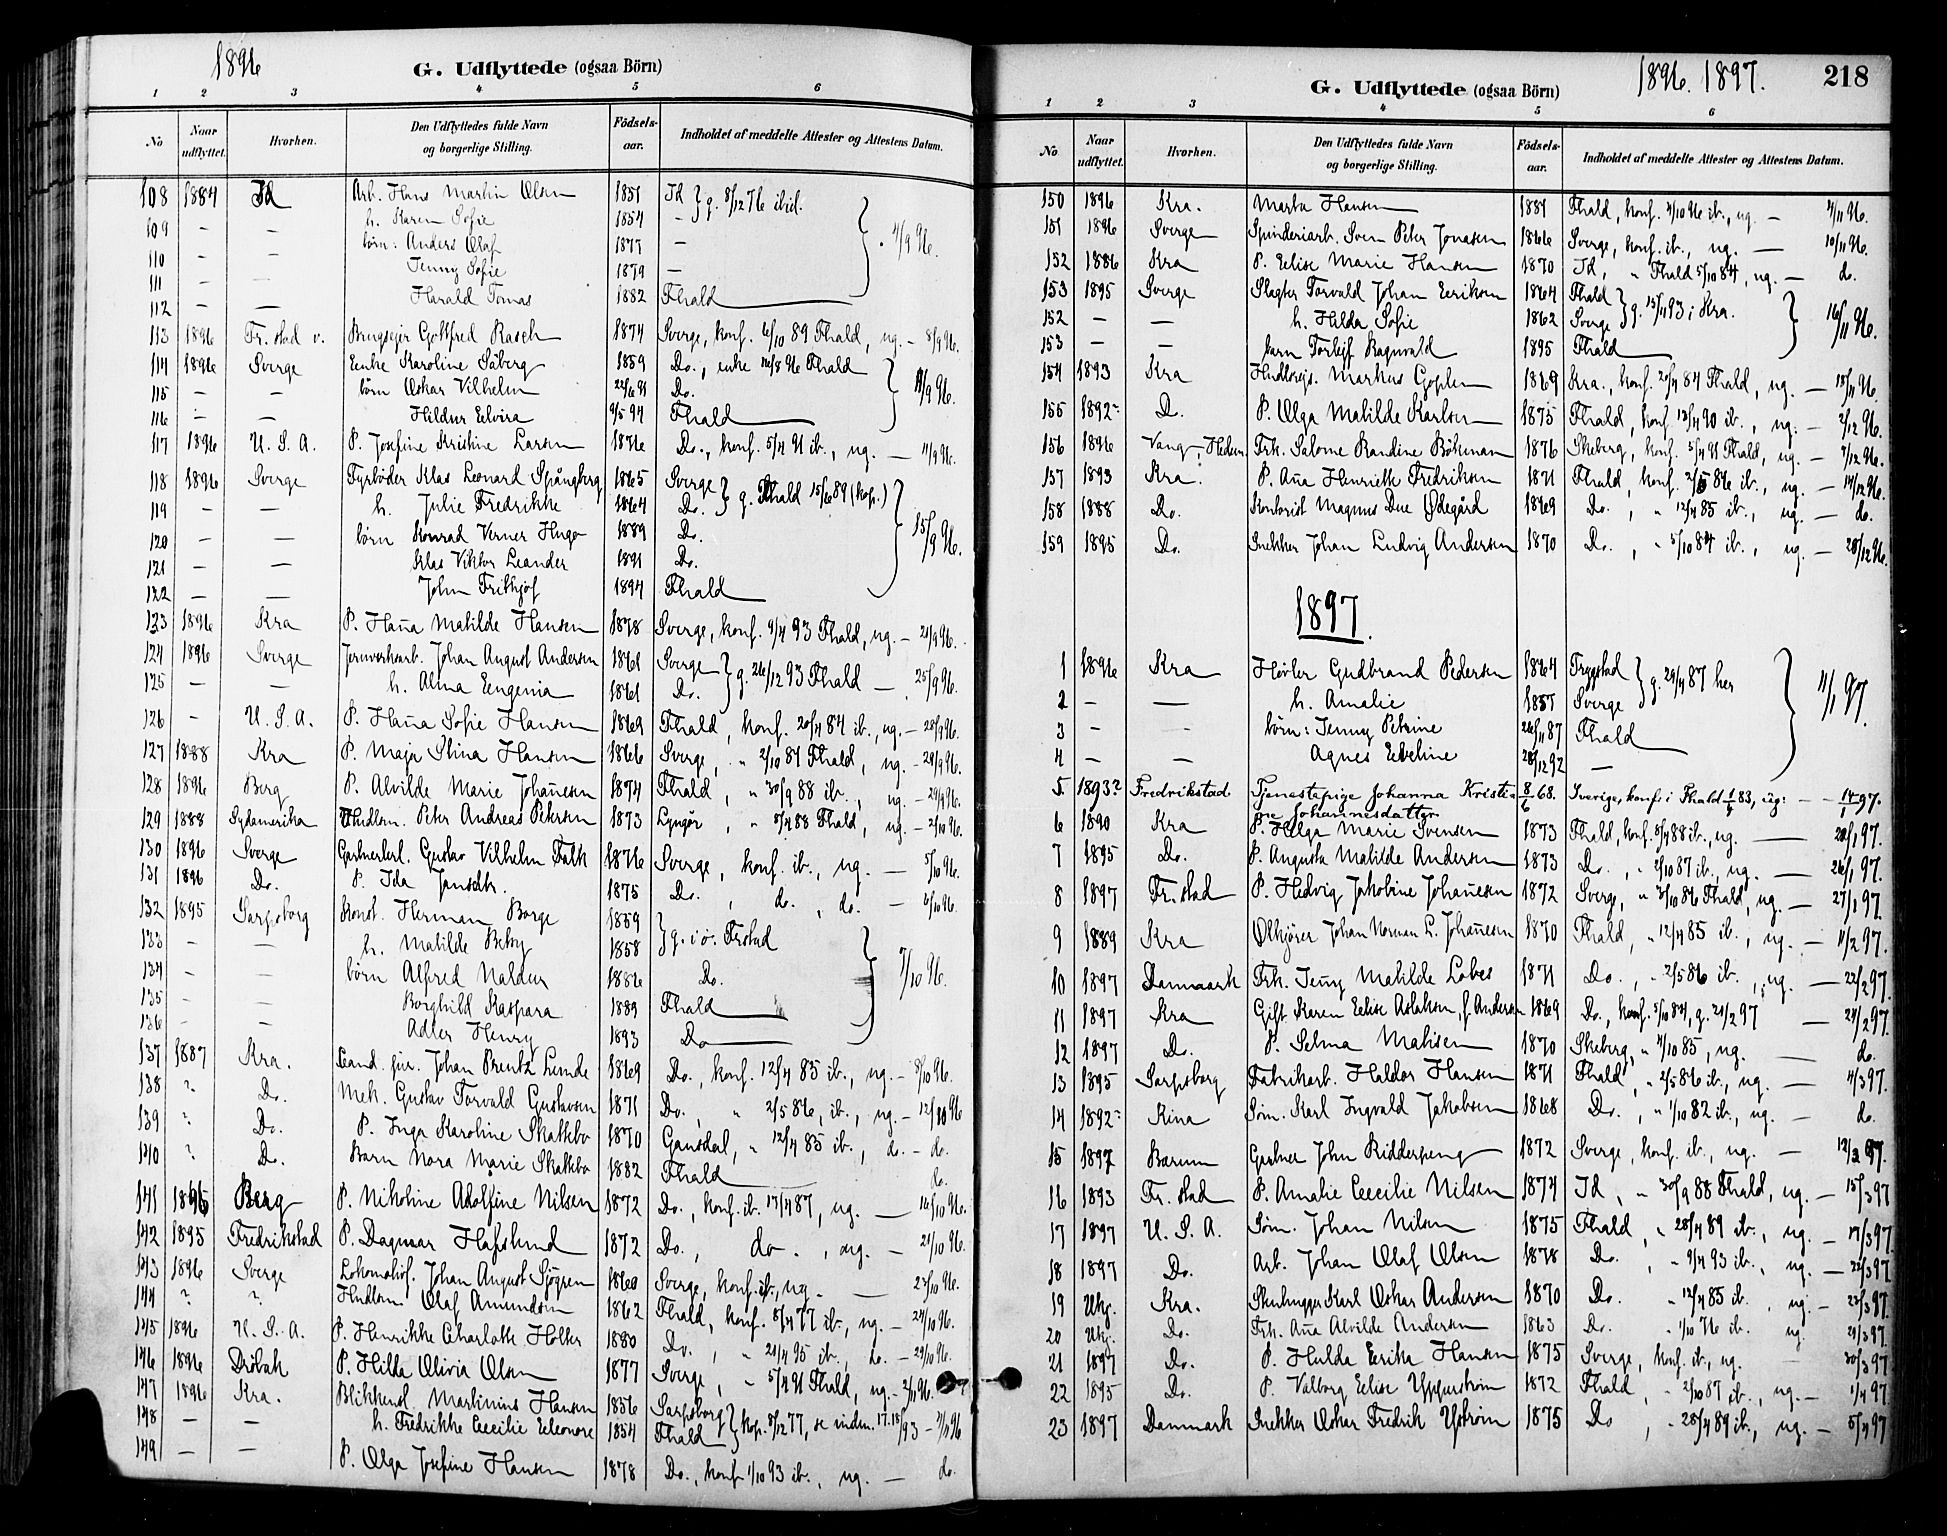 1896
G. Udflyttede (ogsaa Börn)
1 2 3 4 5 6
No
Naar udflyttet.
Hvorhen.
Den Udflyttedes fulde Navn og borgerlige Stilling.
Födsels-aar.
Indholdet af meddelte Attester og Attestens Datum.
108 1884 Id Arb. Hans Martin Olsen 1851 Id } g. 8/12 76 ibid.
109 – – h. Karen Sofie 1854 –
110 – – börn: Anders Olaf 1877 – 4/9 96.
111 – – Jenny Sofie 1879 –
112 – – Harald Tomas 1882 Fhald
113 1896 Fr.stad v. Brugsejer Gottfred Rasch 1874 Sverge, konf. 6/10 89 Fhald, ug. – 8/9 96.
114 1896 Sverge Enke Karoline Säberg 1859 Do., enke 16/8 96 Fhald
115 – – börn Oskar Vilhelm 22/6 91 Do. 11/9 96.
116 – – Hildur Elvira 9/5 94 Fhald
117 1896 U. S. A. P. Josefine Kristine Larsen 1876 Do., konf. 5/4 91 ib., ug. – 11/9 96.
118 1896 Sverge Fyrböder Klas Leonard Spångberg 1865 Sverge } g. Fhald 15/6 89 (kop.)
119 – – h. Julie Fredrikke 1864 Do.
120 – – börn Konrad Verner Hugo 1889 Do. 15/9 96.
121 – – Klas Viktor Leander 1891 Do.
122 – – John Frithjof 1894 Fhald
123 1896 Kra P. Hana Matilde Hansen 1878 Sverge, konf. 9/4 93 Fhald, ug. – 21/9 96.
124 1896 Sverge Jernverksarb. Johan August Andersen 1861 Sverge } g. 26/12 93 Fhald – 25/9 96.
125 – – h. Alma Eugenia 1861 Do.
126 – U. S. A. P. Hana Sofie Hansen 1869 Fhald, konf. 20/4 84 ib., ug. – 28/9 96.
127 1888 Kra P. Maja Stina Hansen 1866 Sverge, " 2/10 81 Fhald, ug. – 29/9 96.
128 1896 Berg P. Alvilde Marie Johanesen 1874 Fhald, " 30/9 88 ib., ug. – 29/9 96.
129 1888 Sydamerika Hndlsm. Peter Andreas Petersen 1873 Lyngør, " 8/4 88 Fhald, ug. – 2/10 96.
130 1896 Sverge Gartnerlærl. Gustav Vilhelm Falk 1876 Sverge, konf. ib., ug. – 5/10 96.
131 1896 Do. P. Ida Jansdtr. 1875 Do., do., do. – 6/10 96.
132 1895 Sarpsborg Konst. Herman Borge 1859 } g. i ö. Frstad
133 – – h. Matilde Betsy 1858
134 – – börn Alfred Valdur 1886 Do. 7/10 96.
135 – – Borghild Kaspara 1889 Fhald
136 – – Adler Henry 1893 Do
137 1887 Kra. Cand. jur. Johan Prentz Lunde 1869 Do., konf. 12/4 85 ib., ug. – 8/10 96.
138 ? Do. Mek. Gustav Torvald Gustavsen 1871 Do. " 2/5 86, ib., ug. – 12/10 96
139 ? Do. P. Inga Karoline Skattebo 1870 " 12/4 85 ib., do. – do.
140 ? Do. Barn Nora Marie Skattebo 1882 Fhald do.
141 1896 Berg P. Nikoline Adolfine Nilsen 1872 Do., konf. ib. 17/4 87, ug. – 16/10 96.
142 1895 Fredrikstad P. Dagmar Hafslund 1872 Do., do., ug. – 21/10 96.
143 1896 Sverge Lokomotivf. Johan August Sjögren 1860 Sverge, konf. ib., ug. – 23/10 96.
144 ? ? Hndlsm. Olaf Amundsen 1862 Fhald, konf. 8/4 77 ib., ug. – 24/10 96.
145 1896 U. S. A. P. Henrikke Charlotte Holter 1880 Do., " 21/4 95 ib., do. – 29/10 96.
146 1896 Dröbak P. Hilda Olivia Olsen 1877 Sverge, " 5/4 91 Fhald, ug. – 2/11 96.
147 1896 Kra. Blikkensl. Martinius Hansen 1856 Sarpsborg } kop. 8/12 77, se indm. 17. 18/93 – 4/11 96
148 – – h. Fredrikke Cecilie Eleonore 1854 Fhald
149 – – P. Olga Josefine Hansen 1878 Do., konf. 1/10 93 ib., ug. – do.
1896. 1897. 218
G. Udflyttede (ogsaa Börn)
1 2 3 4 5 6
No
Naar udflyttet.
Hvorhen.
Den Udflyttedes fulde Navn og borgerlige Stilling.
Födsels-aar.
Indholdet af meddelte Attester og Attestens Datum.
150 1896 Kra. Marta Hansen 1881 Fhald, konf. 4/10 96 ib., ug. – 4/11 96.
151 1896 Sverge Spinderiarb. Sven Peter Jonasen 1866 Sverge, konf. ib., ug. – 10/11 96.
152 1886 Kra P. Elise Marie Hansen 1870 Id, " Fhald 5/10 84, ug. – do.
153 1895 Sverge Slagter Torvald Johan Eriksen 1864 Fhald } g. 15/11 93 i Kra.
152 – – h. Hilda Sofie 1862 Sverge 16/11 96.
153 – – barn Torleif Ragnvald 1895 Fhald
154 1893 Kra Hndlsrejs. Markus Goplen 1869 Kra., konf. 20/4 84 Fhald, ug. – 18/11 96.
155 1892 Do. P. Olga Matilde Karlsen 1875 Fhald, konf. 13/4 90 ib., ug. – 2/12 96.
156 1896 Vang, Hedem. Frk. Salome Randine Böhman 1876 Skeberg, konf. 5/4 91 Fhald, ug. – 7/12 96.
157 1893 Kra. P. Ana Henriette Fredriksen 1871 Fhald, konf. 2/5 86 ib., ug. – 14/12 96.
158 1888 Do. Kontorist Magnus Due Ödegård 1869 Do., " 12/4 85 ib., ug. – do.
159 1895 Do. Snekker Johan Ludvig Andersen 1870 Do., " 5/10 84 ib., ug. – 28/12 96.
1897.
1 1896 Kra Hövler Gudbrand Pedersen 1864 Trygstad } g. 24/4 87 her
2 – – h. Amalie 1857 Sverge 11/1 97.
3 – – börn: Jenny Petrine 26/11 87 Fhald
4 – – Agnes Eveline 28/12 92 –
5 1893? Fredrikstad Tjenestepige Johanna Kristine Johannesdatter 8/6 68. Sverige, konf. i Fhald 1/4 83, ug: – 14/1 97.
6 1890 Kra P. Helga Marie Svensen 1873 Fhald, konf. 8/4 88 ib., ug. – 20/1 97.
7 1895 Do. P. Augusta Matilde Andersen 1873 Do., " 2/10 87 ib., ug. – 26/1 97.
8 1897 Fr.stad P. Hedvig Jakobine Johanesen 1872 Sverge, " 3/10 86 Fhald, ug. – 27/1 97.
9 1889 Kra Ølkjörer Johan Norman L. Johanesen 1870 Fhald, " 12/4 85 ib., ug. – 11/2 97.
10 1897 Danmark Frk. Jeny Matilde Lobes 1871 Do., " 2/5 86 ib., ug. – 22/2 97.
11 1897 Kra Gift Karen Elise Aslaksen, f. Andersen 1869 Do., konf. 5/10 84, g. 21/2 97 – 24/2 97.
12 1897 Do. P. Selma Matisen 1870 Skeberg, " 4/10 85, ug. – do.
13 1895 Sarpsborg Fabrikarb. Haldor Hansen 1871 Fhald, " 2/5 86 ib., ug. – 4/3 97.
14 1892 Kina Söm. Karl Ingvald Jakobsen 1868 Do., " 1/10 82 ib., ug. – do.
15 1897 Bærum Gartner John Ridderspeng 1872 Sverge, konf. ib., ug. – 12/3 97.
16 1893 Fr.stad P. Amalie Cecilie Nilsen 1874 Id, " 30/9 88 Fhald, ug. – 15/3 97
17 1897 U. S. A. Söm. Johan Nilsen 1875 Fhald, " 28/4 89 ib., ug. – 17/3 97.
18 1897 Do. Arb. Johan Olaf Olsen 1878 Do., " 9/4 93 ib., ug. – 22/3 97
19 Ukj. Kra. Stenhugger Karl Oskar Andersen 1870 Do. " 12/4 85 ib., ug. – 23/3 97.
20 Ukj. Do. Frk. Ana Alvilde Andersen 1863 Do. " 1/10 76 ib. ug. 21/3 97.
21 1897 Do. P. Hulda Erika Hansen 1875 Sverge, konf. ib., ug. – 30/3 97
22 1895 Do. P. Valborg Elise Uggerström 1872 Fhald, " 2/10 87 ib., ug. – 1/4 97.
23 1897 Danmark Snekker Oskar Fredrik Ystrøm 1875 Do, " 28/4 89 ib., ug. – 5/4 97